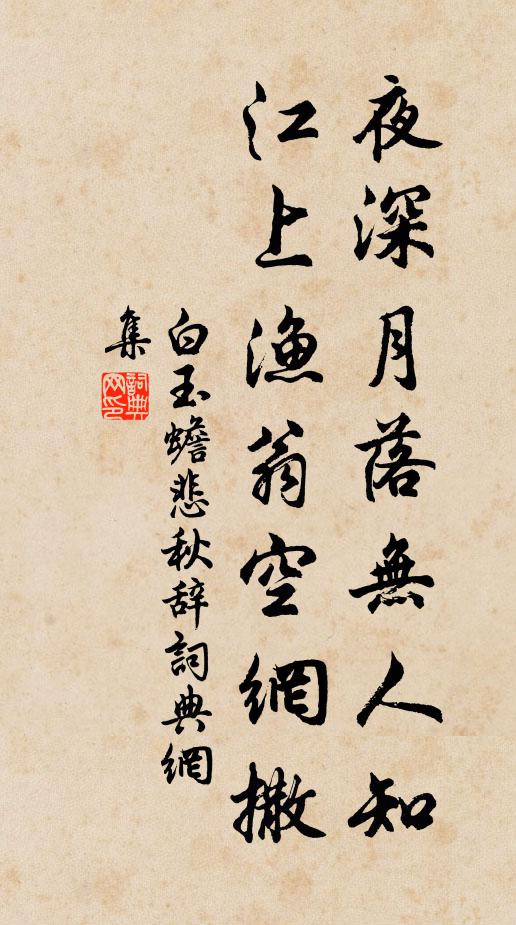 夜深月落無人知
江上漁翁空網撒
白玉蟾悲秋辞詞典網
集
詞典网印